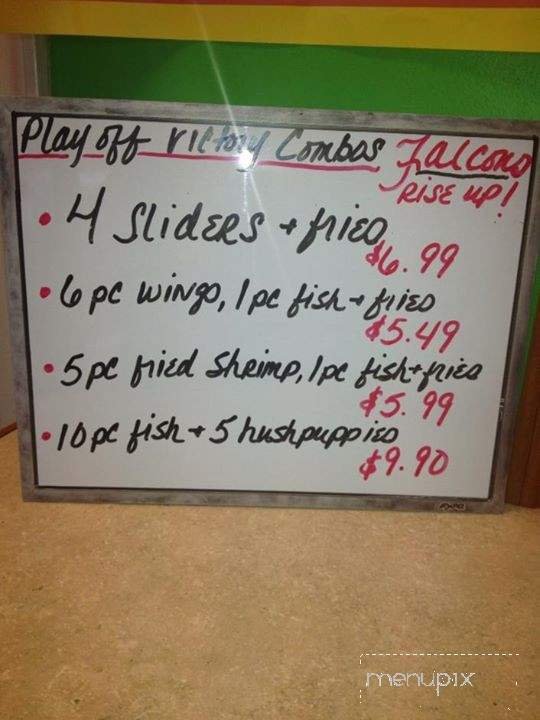 Play off Victory Combos Falcons
RISE UP!
• 4 Sliders + fries
$6.99
• 6 pc wings, 1 pc fish + fries
$5.49
• 5 pc fried Shrimp, 1 pc fish + fries
$5.99
• 10 pc fish + 5 hushpuppies
$9.90
EXPO
menupix